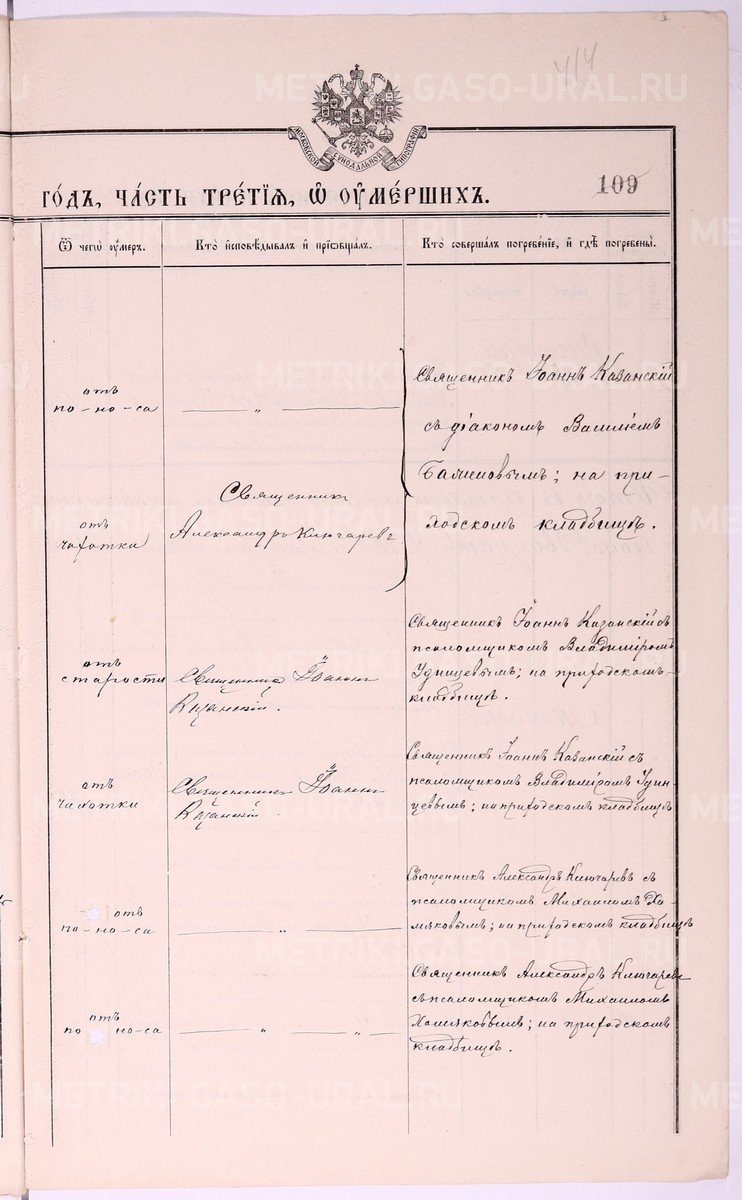 414
МОСКОВСКОЙ СѴНОДАЛЬНОЙ ТИПОГРАФІИ
109
ГО́ДЪ, ЧА́СТЬ ТРЕ́ТІЯ, Ѽ ОУМЕ́РШИХЪ.
Ѿ чегѡ̀ оу́меръ.
Кто̀ и҆сповѣ́дывалъ и҆ прїѡбща́лъ.
Кто̀ соверша́лъ погребе́нїе, и҆ гдѣ̀ погребены̀.
отъ
по-но-са
— „ —
Священникъ Іоаннъ Казанскій
съ діакономъ Василіемъ
на при-
ходскомъ кладбищѣ.
отъ
чахотки
Священникъ
Александръ Ключаревъ
отъ
старости
Священникъ Іоаннъ
Казанскій.
Священникъ Іоаннъ Казанскій съ
псаломщикомъ Владиміромъ
Удинцевымъ; на приходскомъ
кладбищѣ.
отъ
чахотки
Священникъ Іоаннъ
Казанскій.
Священникъ Іоаннъ Казанскій съ
псаломщикомъ Владиміромъ Удин-
цевымъ; на приходскомъ кладбищѣ
отъ
по-но-са
— „ —
Священникъ Александръ Ключаревъ съ
псаломщикомъ Михаиломъ Хо-
мяковымъ; на приходскомъ кладбищѣ
отъ
по но-са
— „ — „ —
Священникъ Александръ Ключаревъ
съ псаломщикомъ Михаиломъ
Хомяковымъ; на приходскомъ
кладбищѣ.
METRIKI.GASO-URAL.RU